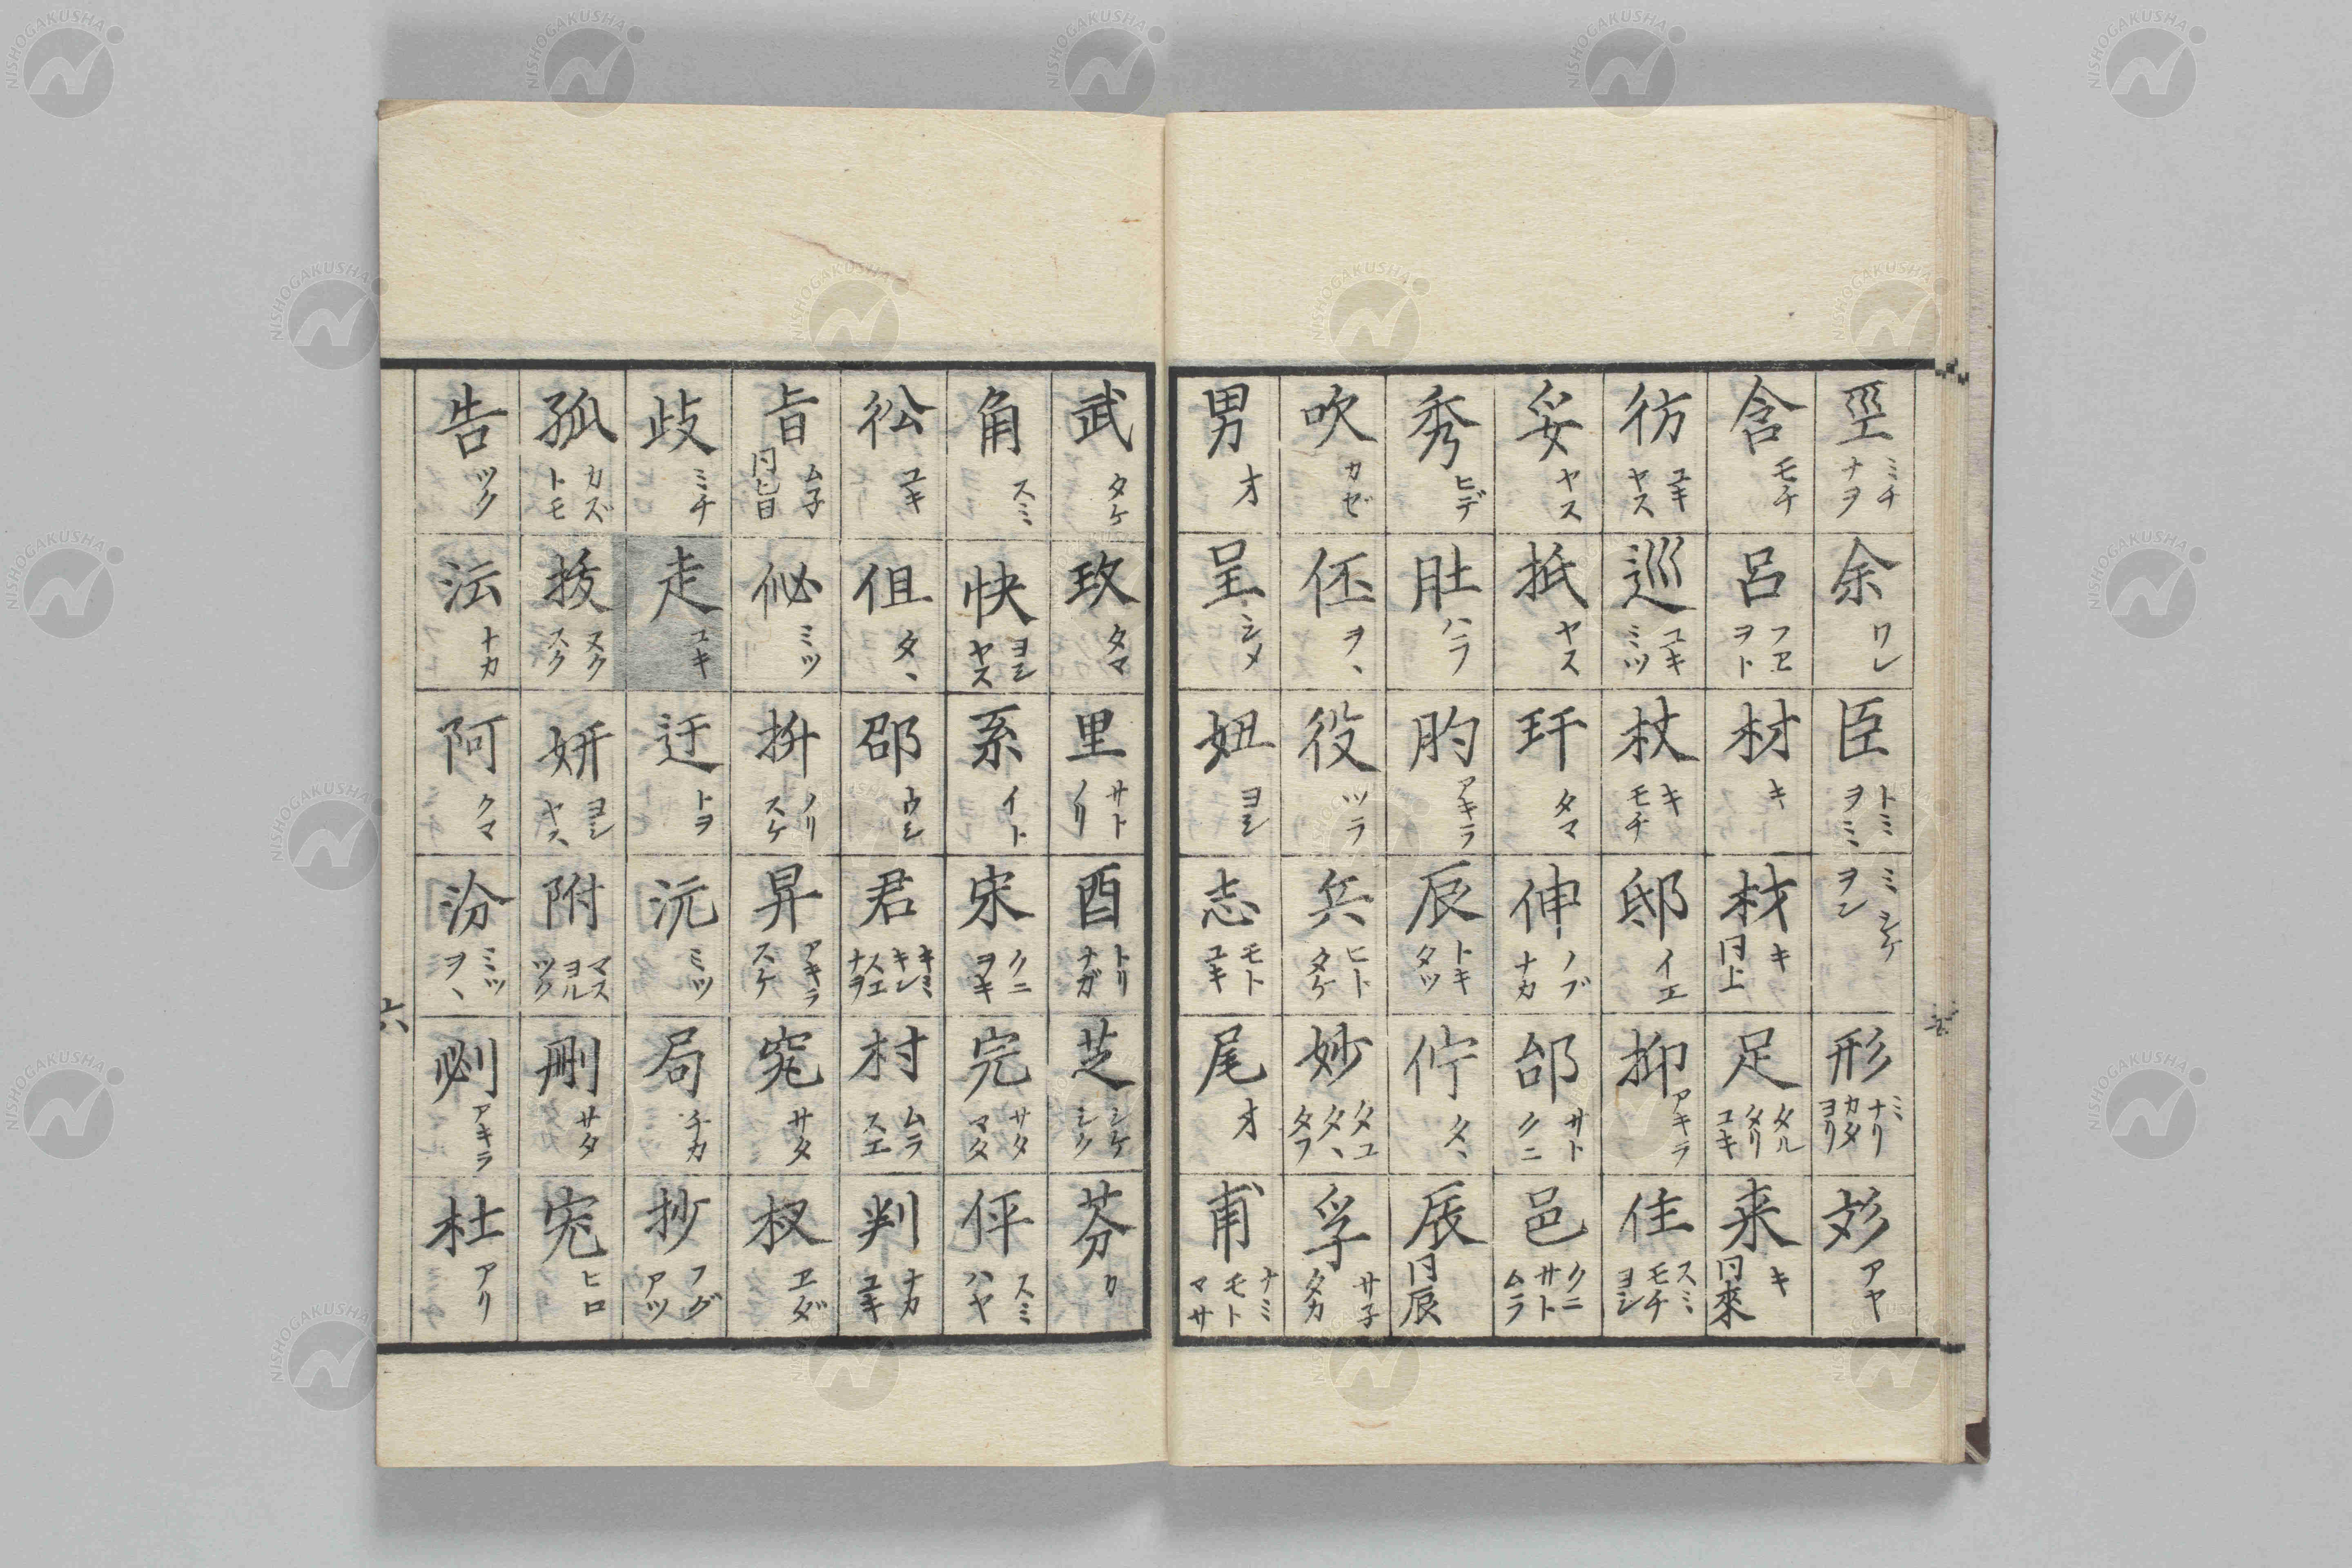 巠 ミチ ナヲ
余 ワレ
臣 トミ ヲミ、 ミ シケ ヲン
形 ミ ナリ カタ ヨリ
彣 アヤ
含 モチ
呂 フヱ ヲト
材 キ
材 キ 同上
足 タル タリ ユキ
来 キ 同來
彷 ユキ ヤス
巡 ユキ ミツ
杖 キ モチ
邸 イエ
抑 アキラ
住 スミ モチ ヨシ
妥 ヤス
抵 ヤス
玕 タマ
伸 ノブ ナカ
邰 サト クニ
邑 クニ サト ムラ
秀 ヒデ
肚 ハラ
肑 アキラ
辰 トキ タツ
佇 タ、
辰 同辰
吹 カゼ
伾 ヲ、
役 ツラ
兵 ヒト タケ
妙 タユ タ、 タフ
孚 サ子 タカ
男 オ
呈 シメ
妞 ヨシ
志 モト ユキ
尾 オ
甫 ナミ モト マサ
武 タケ
玫 タマ
里 サト ノリ
酉 トリ ナガ
芝 シケ シク
芬 カ
角 スミ
快 ヨシ ヤス
系 イト
宋 クニ ヲキ
完 サタ マタ
伻 スミ ハヤ
彸 ユキ
伹 タ、
邵 ウシ
君 キミ キン スエ ナヲ
村 ムラ スエ
判 ナカ ユキ
旨 ム子 同旨
佖 ミツ
抍 ノリ スケ
昇 アキラ スケ
究 サタ
杈 ヱダ
歧 ミチ
走 ユキ
迂 トヲ
沅 ミツ
局 チカ
抄 フグ アツ
孤 カズ トモ
拔 ヌク スク
妍 ヨシ ヤス、
附 マス ヨル ツク
刪 サタ
宄 ヒロ
告 ツク
沄 ナカ
阿 クマ
汾 ミツ ヲ、
刎 アキラ
杜 アリ
六
NISHOGAKUSHA